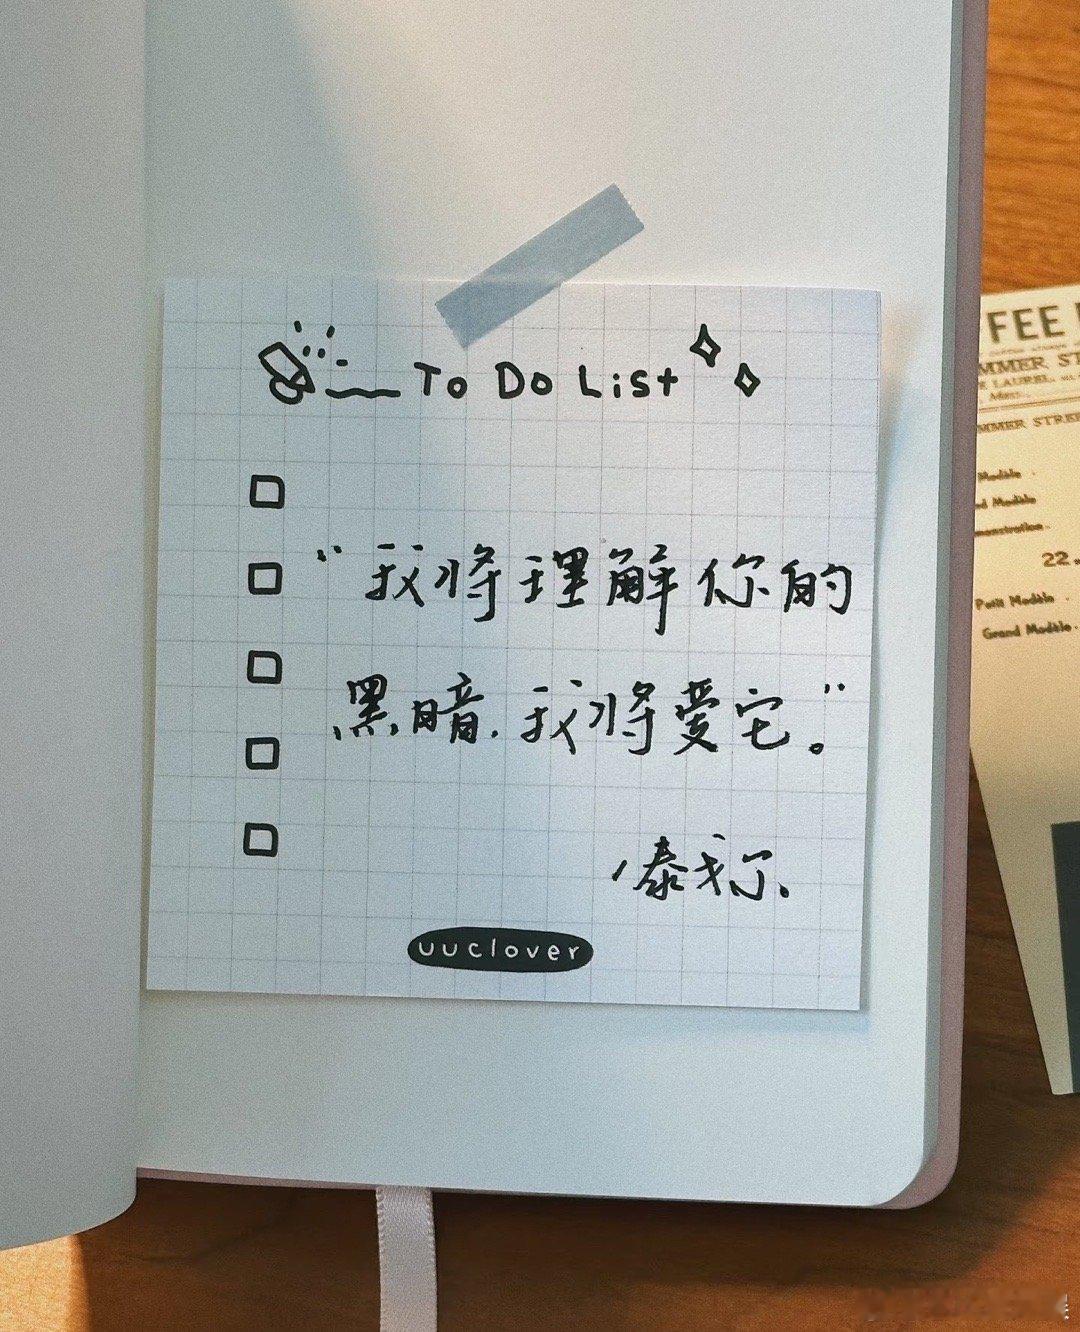 To Do List
“我将理解你的
黑暗.我将爱它。”
泰戈尔
uuclover
FEE
MMER ST
LAUREL.
MMER STREE
Modèle
d Modèle
22
Petit Modèle
Grand Modèle